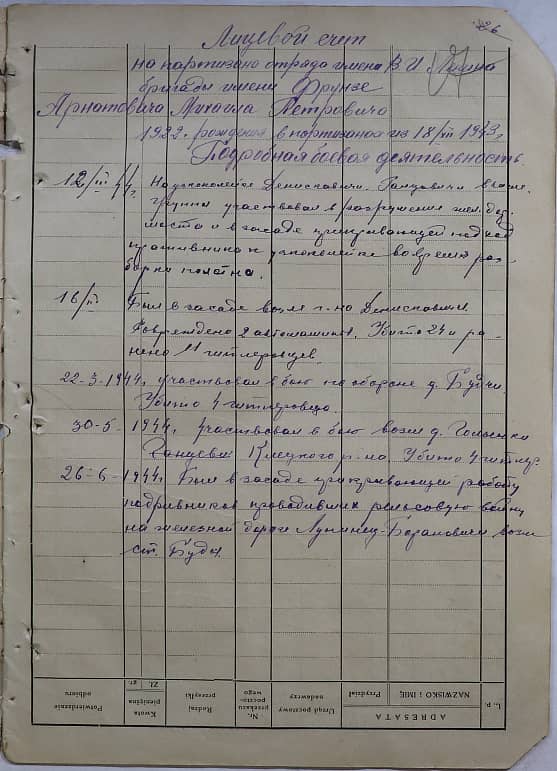 26
Лицевой счет
на партизана отряда имени В. И.
бригады имени Фрунзе
Арнатовича Михаила Петровича
1922 г. рождения в партизанах из 18/III 1943 г.
Подробная боевая деятельность.
12/III 44 г. На узкоколейке Денисковичи-Ганцевичи в составе
группы участвовал в разрушении жел. дор.
моста и в засаде прикрывающей подход
противника к узкоколейке во время раз-
борки полотна.
16/III Был в засаде возле г-на Денисковичи.
Повреждено 2 автомашины. Убито 24 и ра-
нено 11 гитлеровцев.
22-3-1944 г. участвовал в бою по обороне д. Будчи
Убито 4 гитлеровца.
30-5-1944 г. участвовал в бою возле д.
Клецкого р-на Убито 4 гитлер.
26-6-1944 г. Был в засаде прикрывающей работу
подрывников проводивших рельсовую войну
на железной дороге Лунинец-Барановичи возле
ст. Буды.
L. p.
ADRESATA
NAZWISKO i IMIĘ
Przydział
Urząd pocztowy nadawczy
Nr. przekazu poczto-wego
Rodzaj przesyłki
Kwota pieniężna
Zł. gr.
Potwierdzenie odbioru